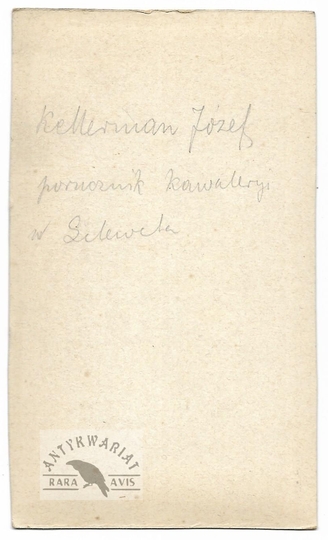 Kellerman Józef
porucznik Kawaleryi
w
ANTYKWARIAT
RARA AVIS